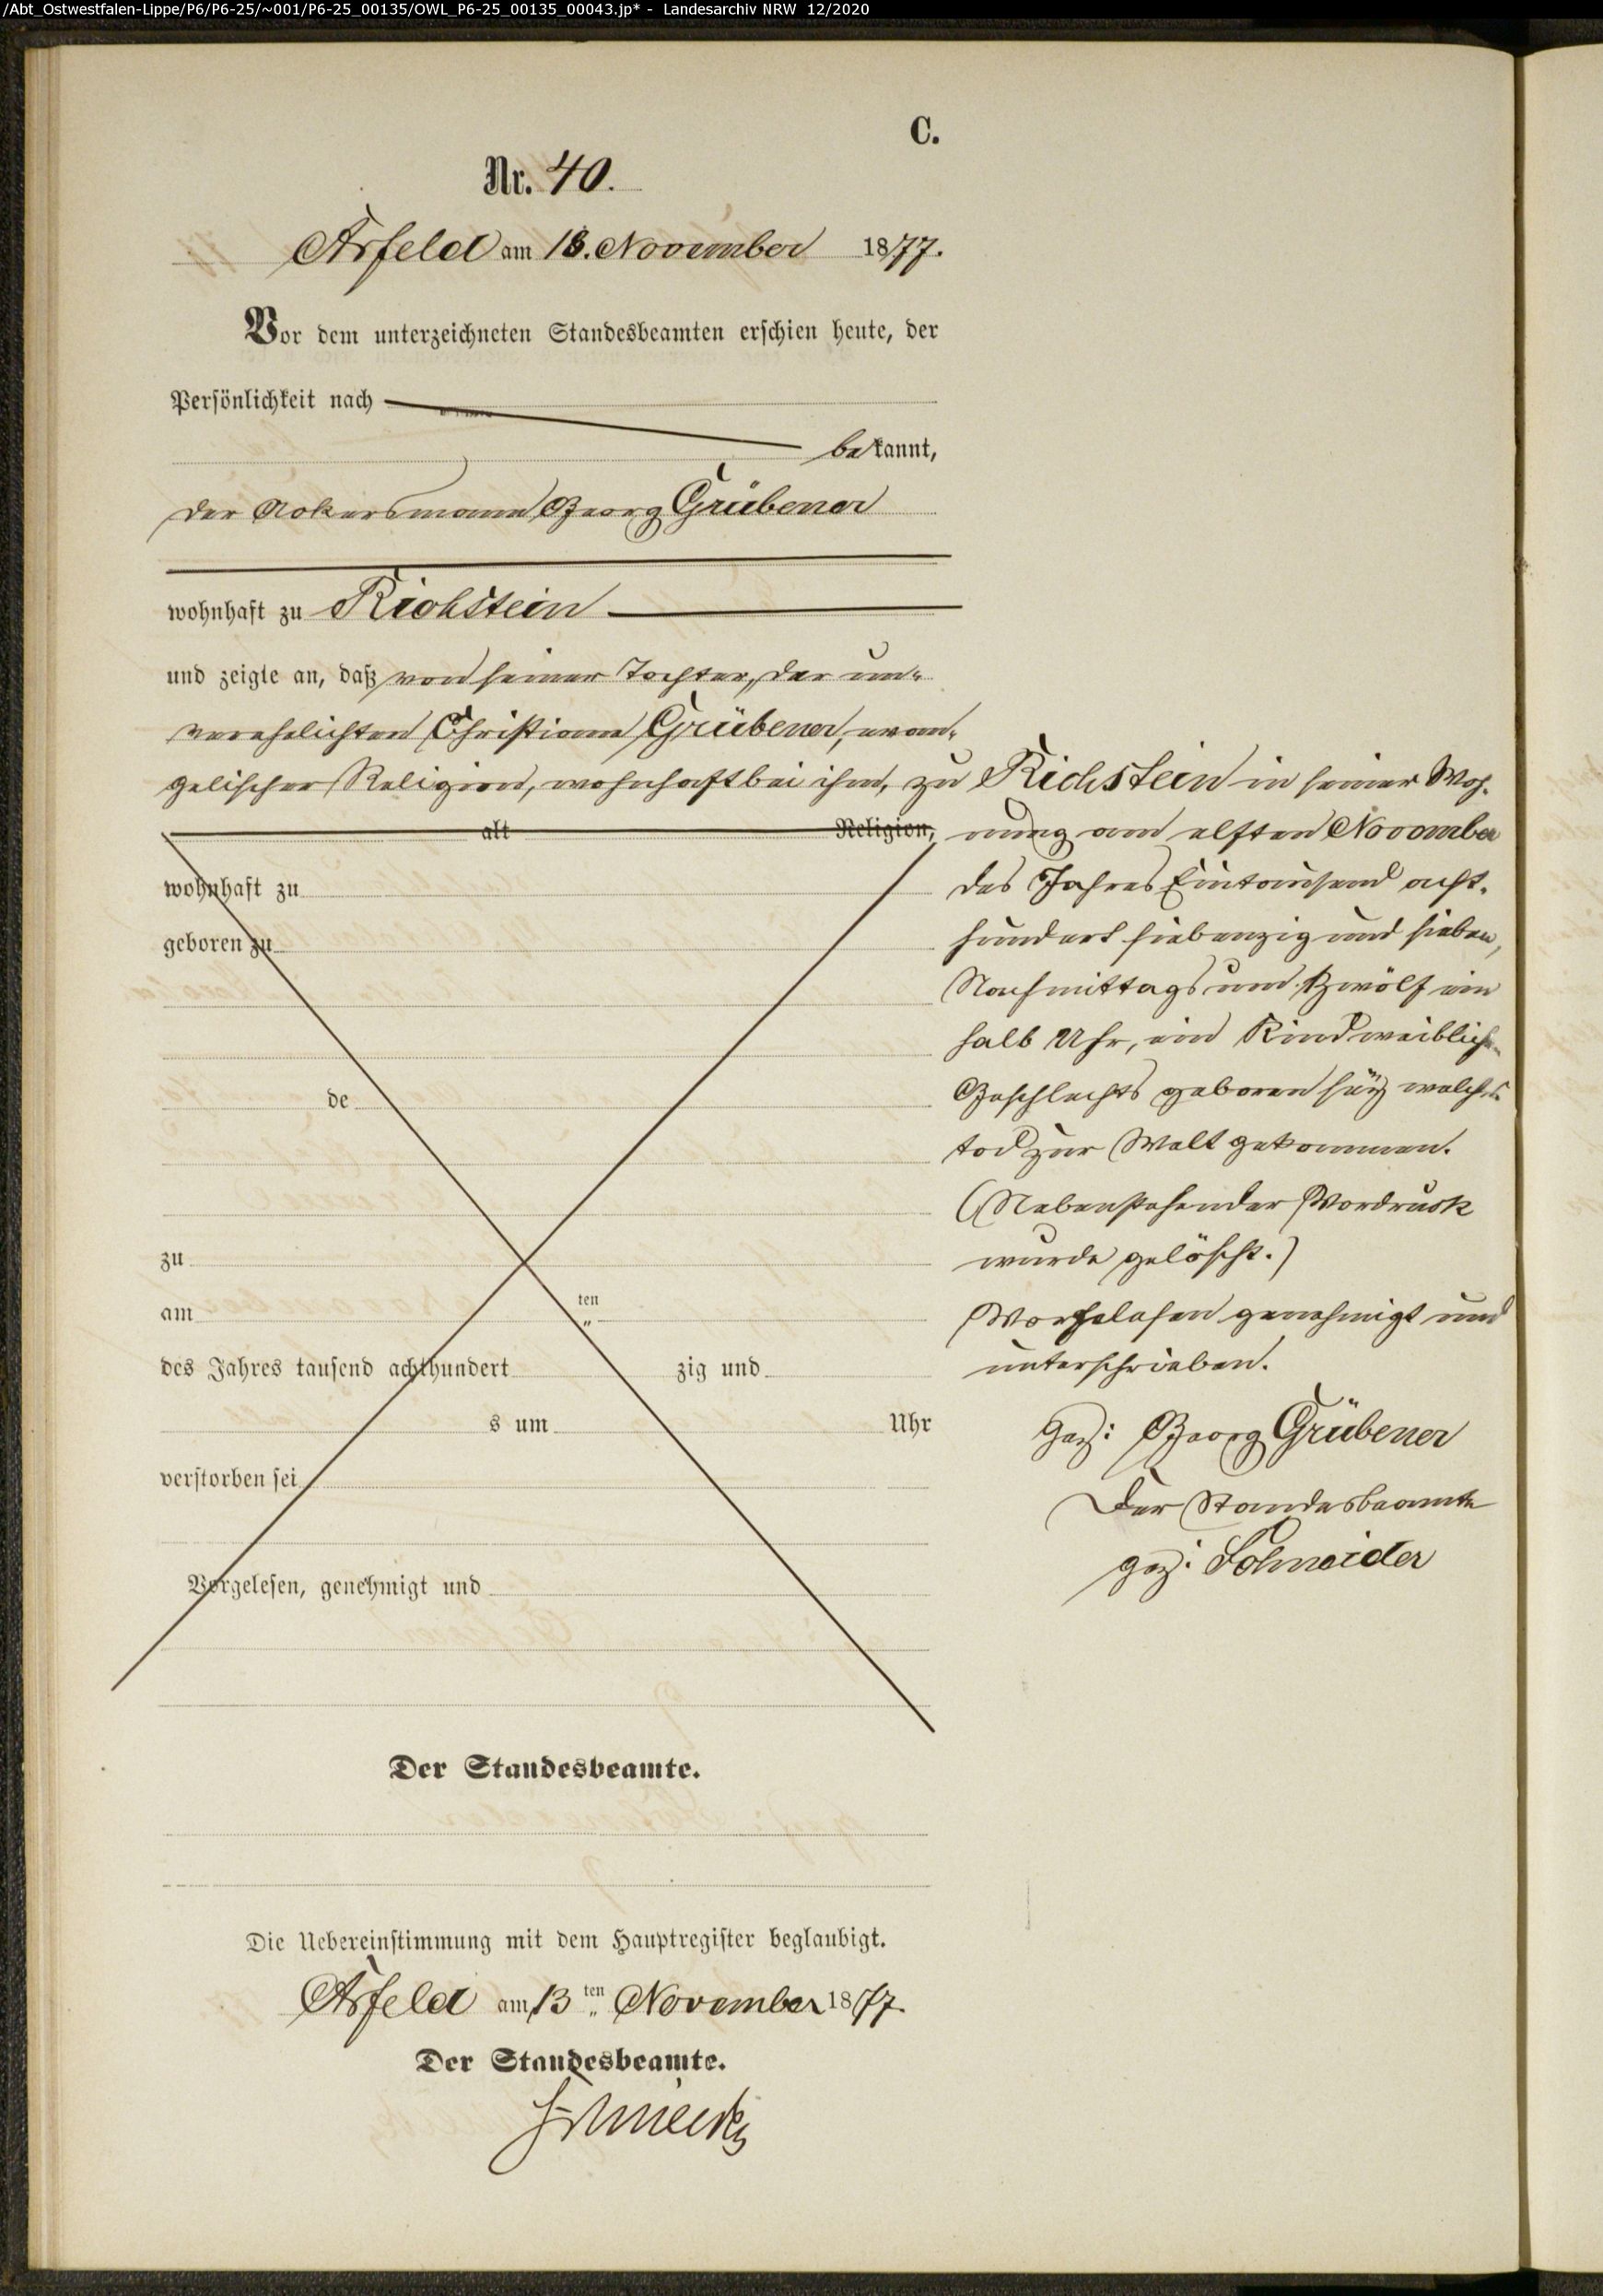 /Abt_Ostwestfalen-Lippe/P6/P6-25/~001/P6-25_00135/OWL_P6-25_00135_00043.jp* - Landesarchiv NRW 12/2020
C.
Nr. 40.
Arfeld am 13. November 1877.
Vor dem unterzeichneten Standesbeamten erschien heute, der
Persönlichkeit nach
bekannt,
der Ackersmann Georg Grübener
wohnhaft zu Richstein
und zeigte an, daß von seiner Tochter, der un-
verehelichten Christiane Grübener, evan-
gelischer Religion, wohnhaft bei ihm, zu Richstein in seiner Woh-
alt Religion,
nung am elften November
wohnhaft zu
des Jahres Eintausend acht-
geboren zu
hundert siebenzig und sieben,
Nachmittags um Zwölf ein
halb Uhr, ein Kind weiblichen
de
Geschlechts geboren sey welches
tod zur Welt gekommen.
(Nebenstehender Vordruck
zu
wurde gelöscht.)
am ten
Vorgelesen genehmigt und
des Jahres tausend achthundert zig und
unterschrieben.
s um Uhr
gez: Georg Grübener
verstorben sei
Der Standesbeamte
gez: Schneider
Vorgelesen, genehmigt und
Der Standesbeamte.
Die Uebereinstimmung mit dem Hauptregister beglaubigt.
Arfeld am 13 ten November 1877.
Der Standesbeamte.
Schneider